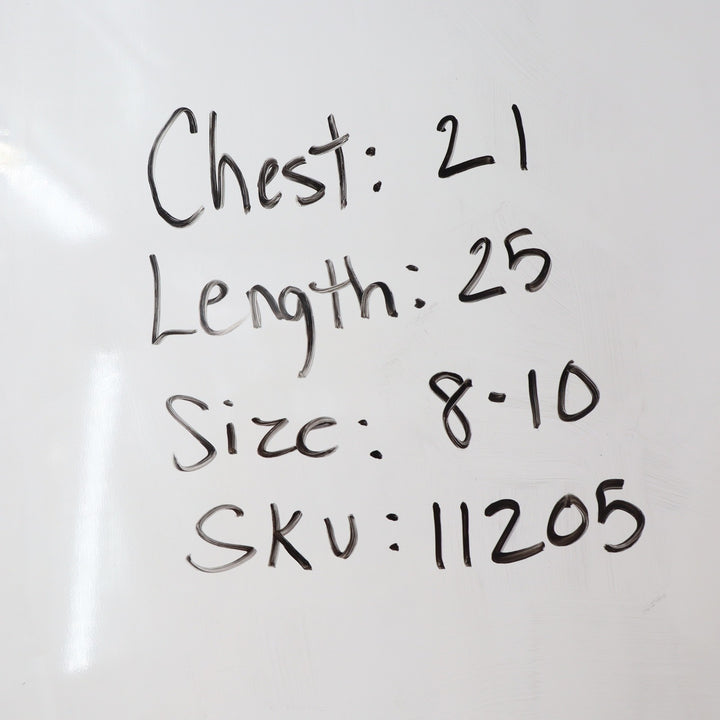 Chest: 21
Length: 25
Size: 8-10
SKU: 11205